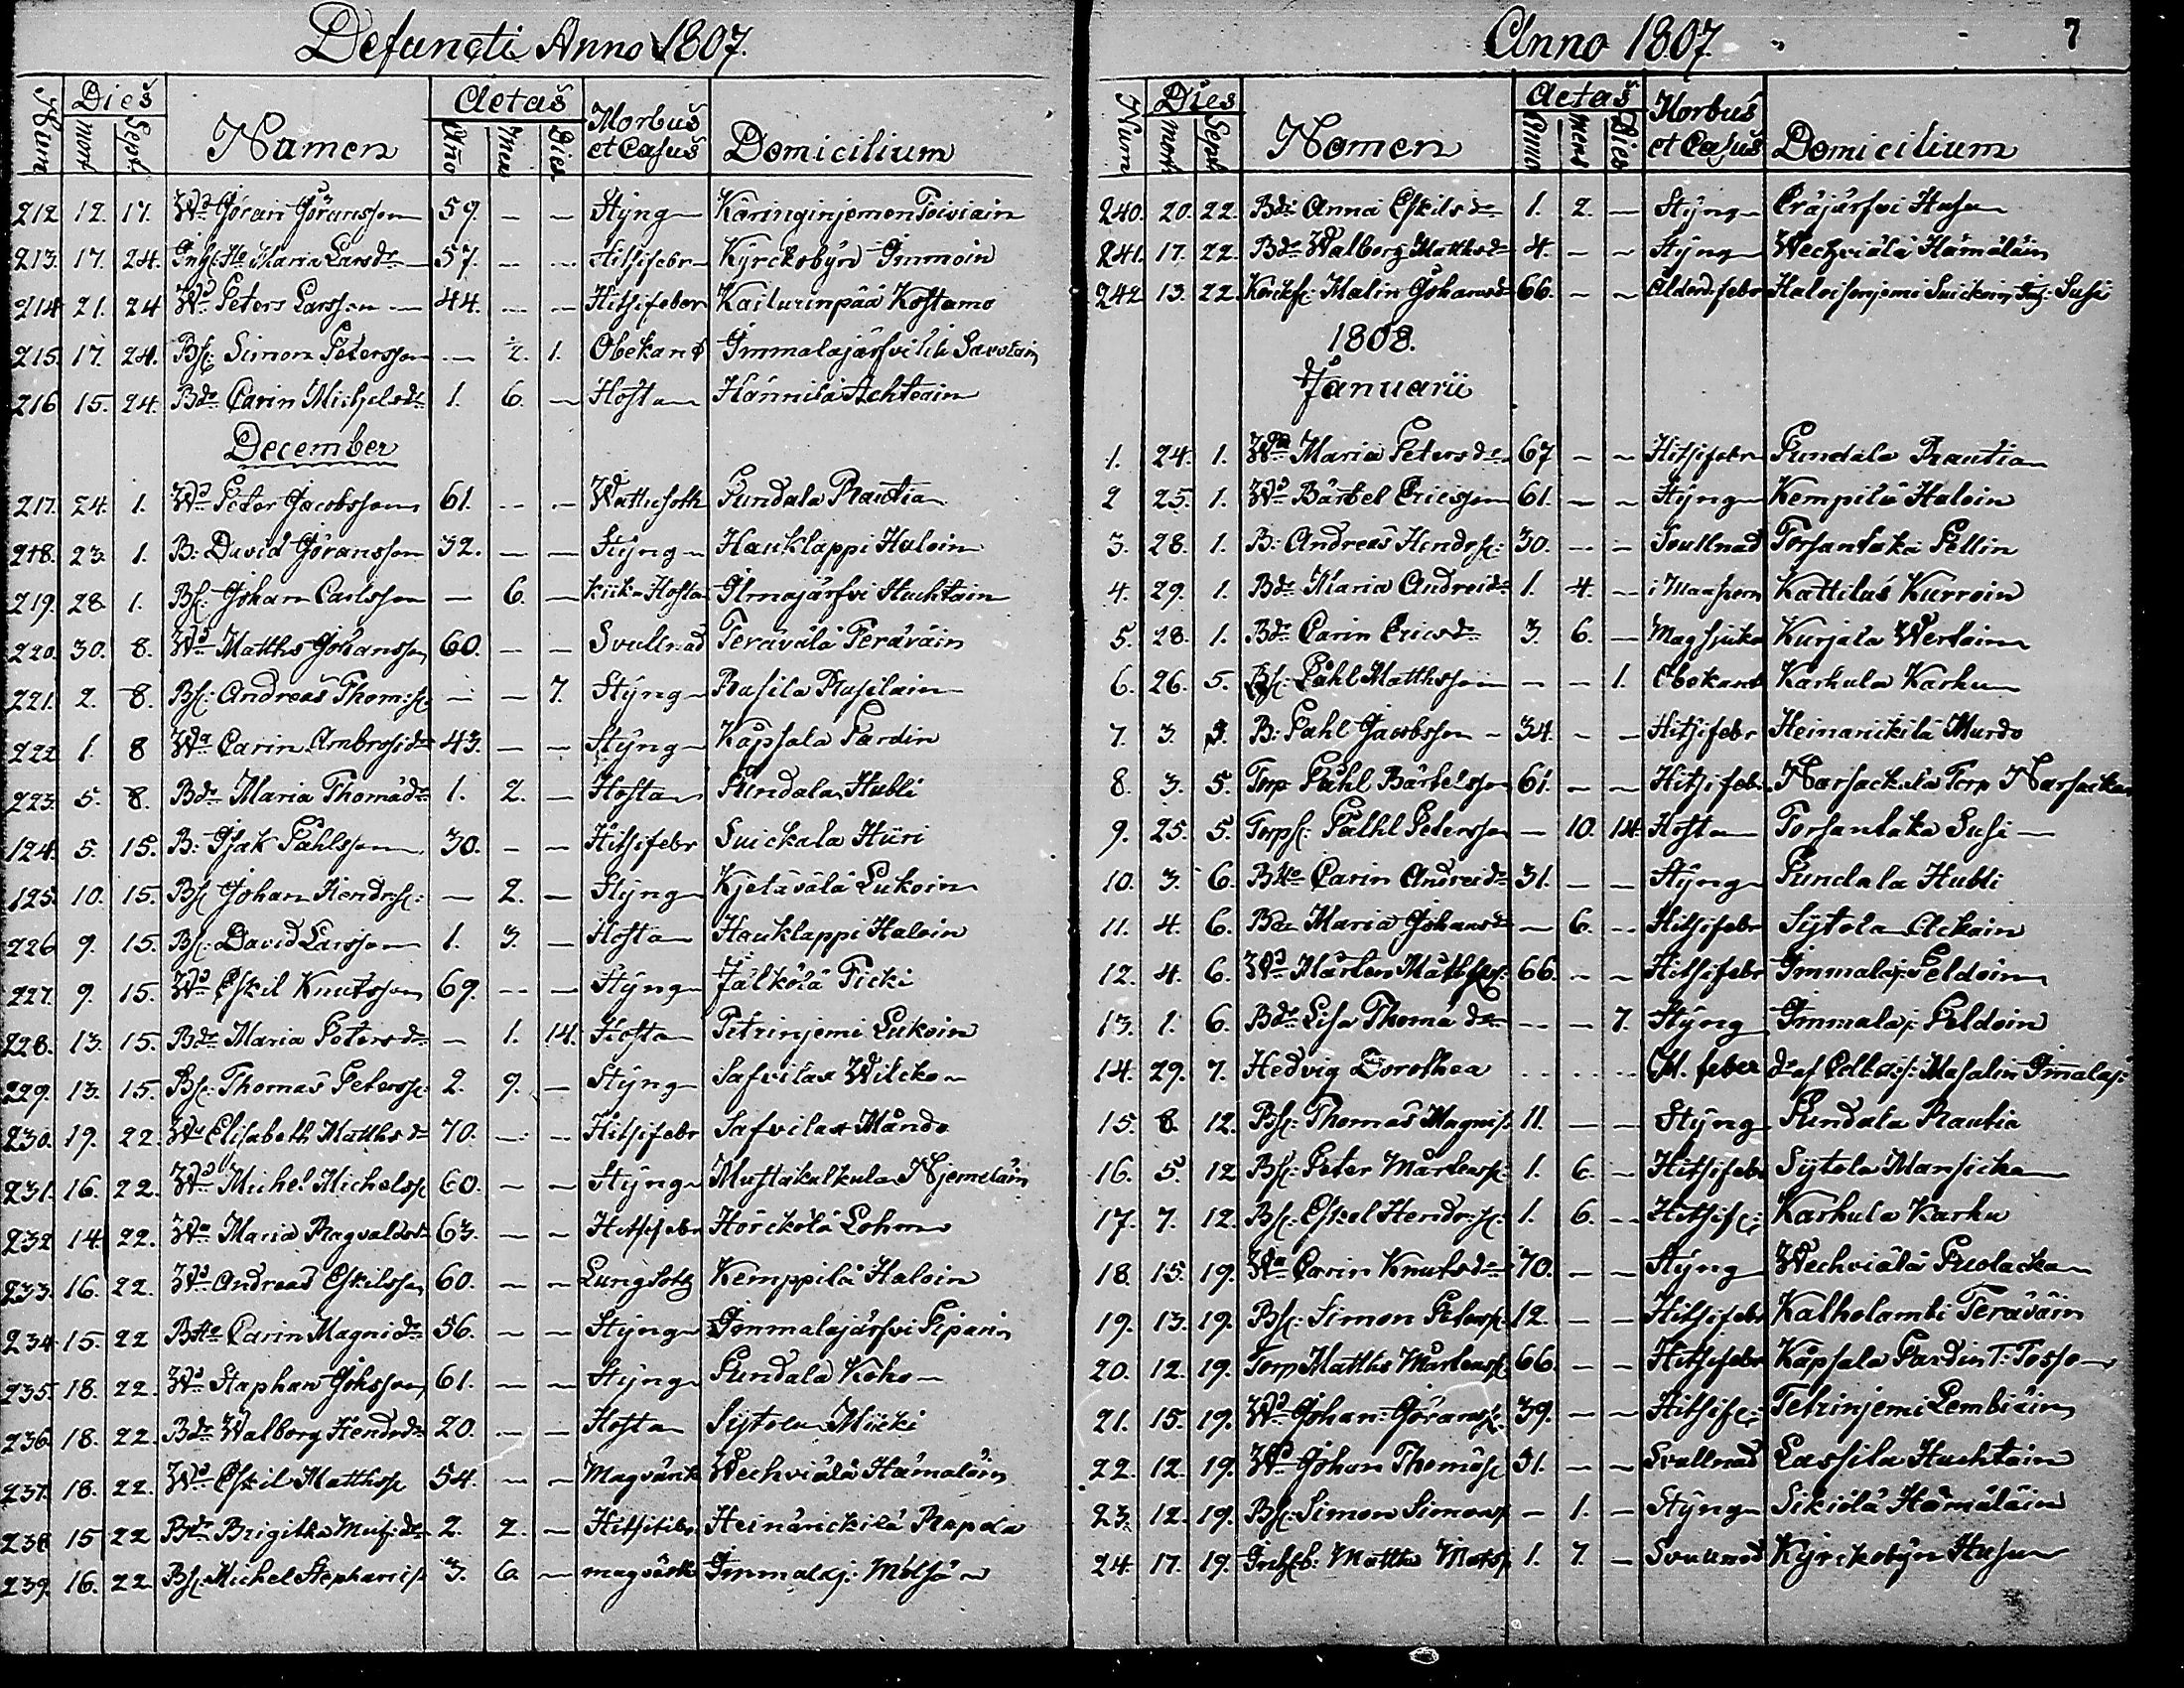 Defuncti Anno 1807.
Num Dies mort Sept. Namen Aetas Año Mens Dies Morbus et Casus Domicilium
212 12. 17. Wd Göran Göransson 59. — — Styng Käringinjemen Toiviain
213. 17. 24. Inh: Ho Maria Larsdr 57. — — Hitsifebr Kyrckobyn Immoin
214 21. 24 Wd Peters Larsson 44. — — Hitsifeber Kailurinpää Kostamo
215. 17. 24. Bs: Simon Petersson — 2. 1. Obekand Immalajärfvi Savolain
216 15. 24. Bdr Carin Michelsdr 1. 6. — Hosta Hännilä Achteain
December
217. 24. 1. Wd Peter Jacobsson 61. — — Wattusoth Pundala Rautia
218. 23. 1. B: David Göransson 32. — — Styng Hauklappi Haloin
219. 28. 1. Bs: Johan Carlsson — 6. — kikHosta Ilmajärfvi Huchtain
220. 30. 8. Wd Matths Göransson 60. — — Svullnad Terävälä Teräväin
221. 2. 8. Bs: Andreas Thom:s: — — 7. Styng Rasila Rasilain
222 1. 8 Wa Carin Ambrosidr 43. — — Styng Käpsala Pardin
223. 5. 8. Bdr Maria Thomædr 1. 2. — Hosta Pundala Hubli
124. 5. 15. B: Isak Påhlsson 30. — — Hitsifebr Suickala Hiiri
125. 10. 15. Bs Johan Hendrs: — 2. — Styng Kjetävälä Lukoin
226 9. 15. Bs: David Larsson 1. 3. — Hosta Hauklappi Haloin
227. 9. 15. Wd Eskil Knutsson 69. — — Styng Jälkölä Ticki
228. 13. 15. Bdr Maria Petersdr — 1. 14. Hosta Petrinjemi Lukoin
229. 13. 15. Bs: Thomas Peterss: 2. 9. — Styng Safvilax Wilcko
230. 19. 22. Wa Elisabeth Matthsdr 70. — — Hitsifebr Safvilax Måndo
231. 16. 22. Wd Michel Michelss 60. — — Styng Mustakulkula Njemeläin
232 14. 22. Wa Maria Ragvaldsdr 63. — — Hitsifebr Hörckölä Lohmo
233. 16. 22. Wd Andreas Eskilsson 60. — — Lungsoth Kemppilä Haloin
234. 15. 22 BHo Carin Magnidr 56. — — Styng Immalajärfvi Piparin
235. 18. 22. Wd Staphan Johsson 61. — — Styng Pundala Koho
236. 18. 22. Bdr Walborg Hendrdr 20. — — Hosta Sijtola Miicki
237. 18. 22. Wd Eskil Matthss 54. — — Magvärk Wechviälä Hämäläin
238 15 22 Bdr Brigitha 2. 2. — Hitsifebr Heinänickilä Rapola
239. 16. 22 Bs: Michel Stephanis: 3. 6. — magvärk Immalaj: Mölsä
Anno 1807. 7
Num Dies mort Sept Nomen Aetas Anno mens Dies Morbus et Casus Domicilium
240. 20. 22. Bdr Anna Eskilsdr 1. 2. — Styng Eräjärfvi Husu
241. 17. 22. Bdr Walborg Matthsdr 4. — — Styng Wechviälä Hämäläin
242 13. 22. Malin Johansdr 66. — — Ålderd.febr Susi
1808.
Januarii
1. 24. 1. Wa Maria Petersdr 67 — — Hitsifebr Pundala Rautia
2 25. 1. Wd Bärtel Ericsson 61. — — Styng Kempilä Haloin
3. 28. 1. B: Andreas Hendrs: 30. — — Svullnad Torsantaka Pellin
4. 29. 1. Bdr Maria Andreidr 1. 4. — Kattilus Kurroin
5. 28. 1. Bdr Carin Ericsdr 3. 6. — Magsjuka Kurjala Wertain
6. 26. 5. Bs: Påhl Matthsson — — 1. Obekand Karhula Karhu
7. 3. 5. B: Pahl Jacobsson 34. — — Hitsifebr Heinänickilä Murdo
8. 3. 5. Torp Påhl Bärtelsson 61. — — Hitsifebr. Narsackala Torp Narsacka
9. 25. 5. Torps: Påhl Petersson — 10. 14. Hosta Torsantaka Susi
10. 3. 6. BHo Carin Andreidr 31. — — Styng Pundala Hubli
11. 4. 6. Bdr Maria Johansdr — 6. — Hitsifebr Sijtola Ackain
12. 4. 6. Wd Mårten Matthss: 66. — — Hitsifebr Immalaj: Peldoin
13. 1. 6. Bdr Lisa Thomædr — — 7. Styng Immalaj: Peldoin
14. 29. 7. Hedvig Dorothea . . . feber Masalin Immalaj:
15. 8. 12. Bs: Thomas Magnis: 11. — — Styng Pundala Rautia
16. 5. 12 Bs: Peter Mårtenss: 1. 6. — Hitsifebr Sijtola Mansicka
17. 7. 12. Bs: Eskel Hendrs: 1. 6. — Hitsife: Karhula Karhu
18. 15. 19. Wa Carin Knutsdr 70. — — Styng Wechviälä Puolacka
19. 13. 19. Bs: Simon Peterss: 12. — — Hitsifebr Kalholambi Teräväin
20. 12. 19. Torp Matths Mårtenss: 66. — — Hitsifebr Käpsala Pardin T: Tosso
21. 15. 19. Wd Johan Görans: 39. — — Hitsife: Petrinjemi Lembiäin
22. 12. 19. Wd Johan Thomæs 31. — — Svullnad Lassila Huchtain
23. 12. 19. Bs: Simon Simons — 1. — Styng Sikiölä Hämäläin
24. 17. 19. Matths Mats 1. 7. — Svullnad Kyrckobyn Husu